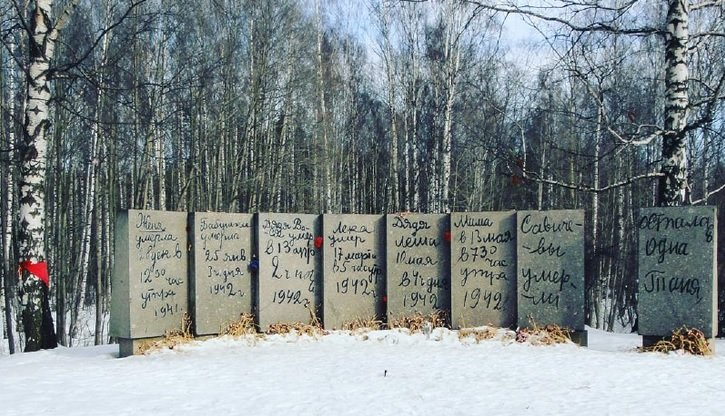 Женя
умерла
28 дек в
12 00 час
утра
1941 г
Бабушка
умерла
25 янв
3ч дня
1942 г
Дядя Ва-
ся умер
в 13 апр
2ч ноч
1942 г
Лека
умер
17 марта
в 5 час утр
1942 г
Дядя
Леша
10 мая
в 4ч дня
1942 г
Мама
в 13 мая
в 7 30
час
утра
1942 г
Савиче-
вы
умер-
ли
осталась
одна
Таня